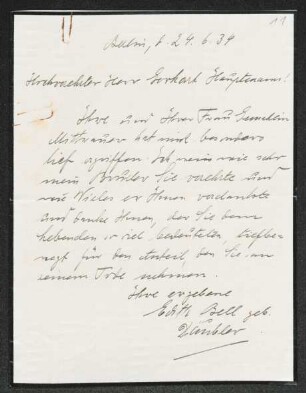 Berlin, d. 24.6.34
Hochverehrter Herr Gerhart Hauptmann!
Ihre und Ihrer Frau Gemahlin
Mittrauer hat mich besonders
tief ergriffen. Ich weiss wie sehr
mein Bruder Sie verehrte und
wie Vieles er Ihnen verdankte
und danke Ihnen, der Sie dem
Lebenden so viel bedeuteten, tiefbe-
wegt für den Anteil, den Sie an
seinem Tode nehmen.
Ihre ergebene
Edith Bell geb.